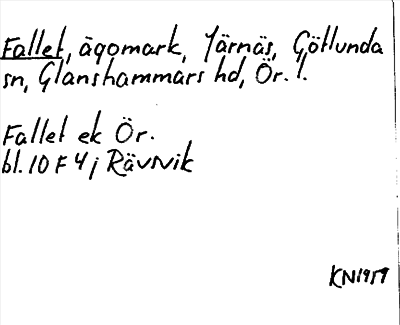 Fallet, ägomark, Järnäs, Götlunda
sn, Glanshammars hd, Ör. l.
Fallet ek Ör.
bl. 10 F 4 j Rävvik
KN1959